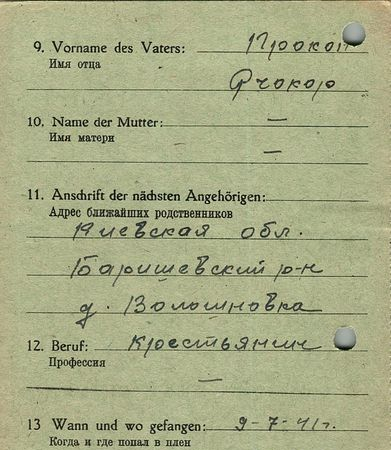 9. Vorname des Vaters: Прокоп
Имя отца
10. Name der Mutter: —
Имя матери
—
11. Anschrift der nächsten Angehörigen:
Адрес ближайших родственников
Киевская обл.
Баришевский р-н
д. Волошновка
12. Beruf: Крестьянин
Профессия
—
13 Wann und wo gefangen: 9-7-41г.
Когда и где попал в плен